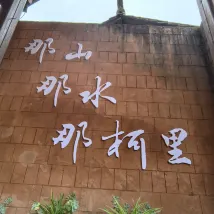 那山
那水
那柯里